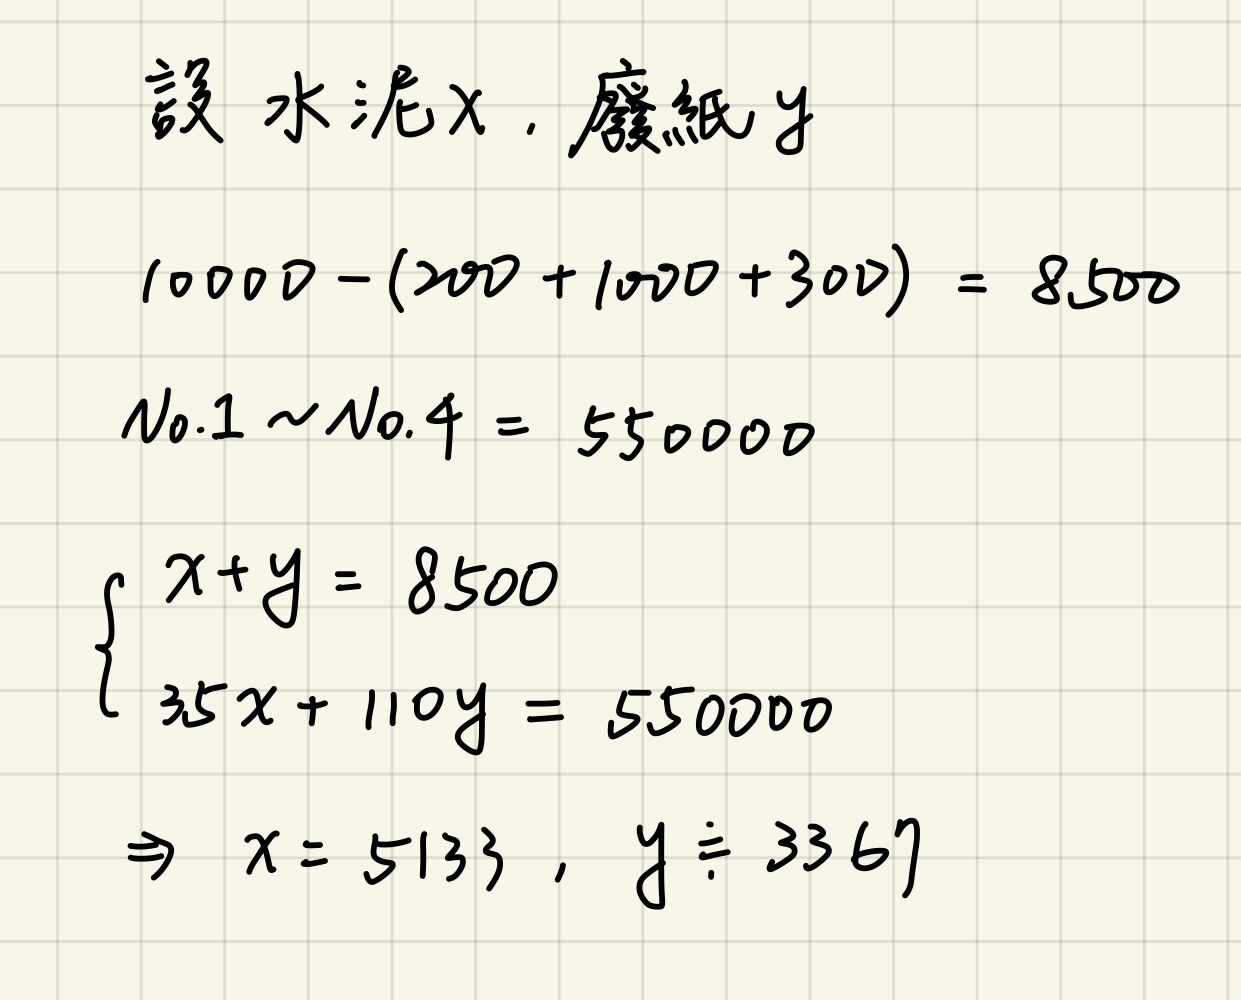 設 水泥x , 廢紙y
10000 - (200 + 1000 + 300) = 8500
No.1 ~ No.4 = 550000
x+y = 8500
35x + 110y = 550000
⇒ x = 5133 , y ≒ 3367